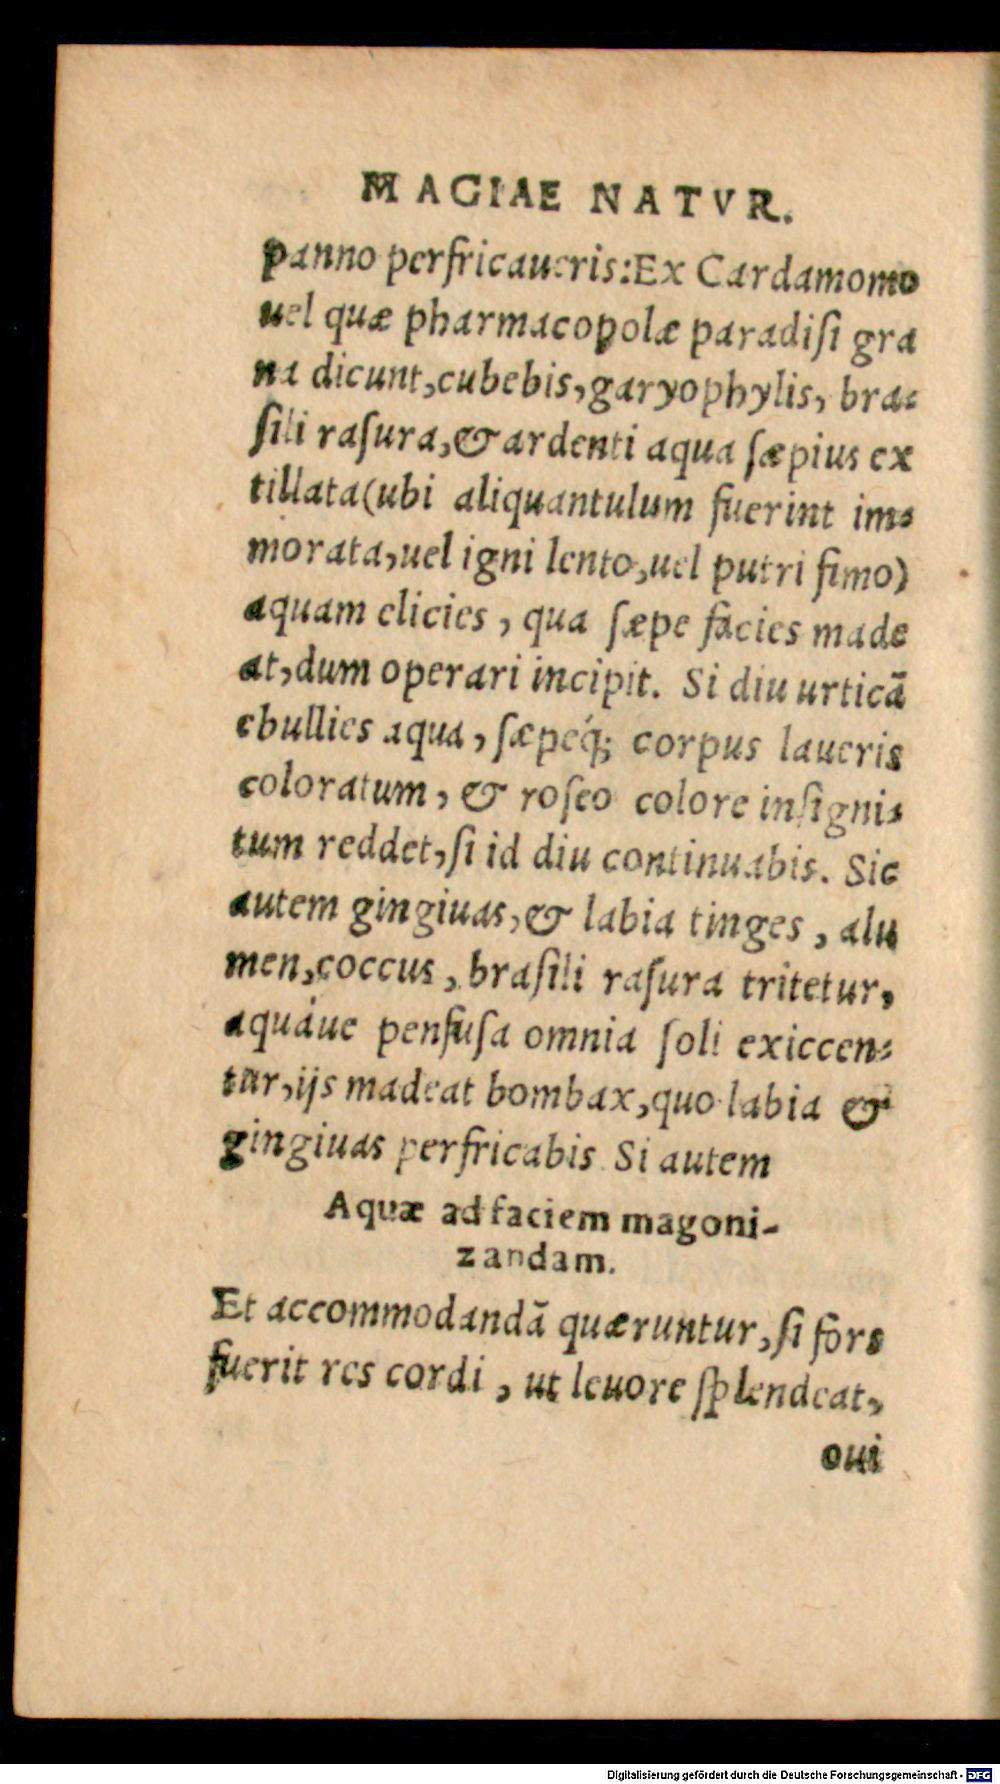 MAGIAE NATVR.
panno perfricaueris: Ex Cardamomo
uel quæ pharmacopolæ paradiſi gra
na dicunt, cubebis, garyophylis, bra-
ſili raſura, & ardenti aqua ſæpius ex
tillata (ubi aliquantulum fuerint im-
morata, uel igni lento, uel putri fimo)
aquam elicies, qua ſæpe facies made
at, dum operari incipit. Si diu urticā
ebullies aqua, ſæpeq́; corpus laueris
coloratum, & roſeo colore inſigni-
tum reddet, ſi id diu continuabis. Sic
autem gingiuas, & labia tinges, alu
men, coccus, braſili raſura tritetur,
aquáue penfuſa omnia ſoli exiccen-
tur, ijs madeat bombax, quo labia &
gingiuas perfricabis. Si autem
Aquæ ad faciem magoni-
zandam.
Et accommodandā quæruntur, ſi fors
fuerit res cordi, ut leuore ſplendeat,
oui
Digitalisierung gefördert durch die Deutsche Forschungsgemeinschaft - DFG